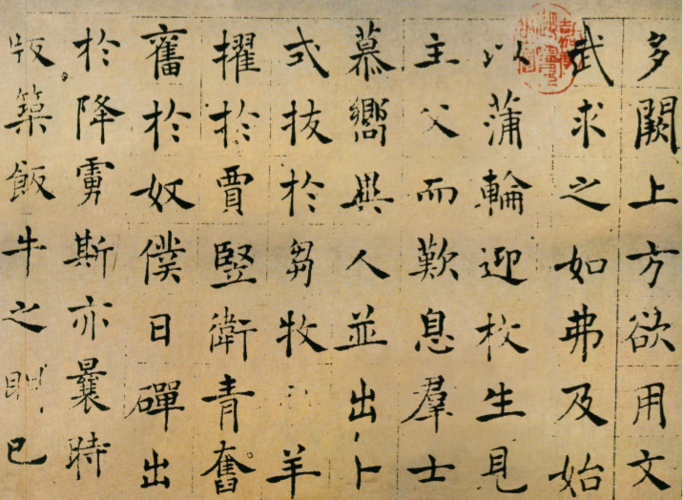 多闕上方欲用文
武求之如弗及始
以蒲輪迎枚生見
主父而歎息羣士
慕嚮與人並出卜
式拔於芻牧羊
擢於賈豎衛青奮
舊於奴僕日磾出
於降虜斯亦曩時
版築飯牛之已